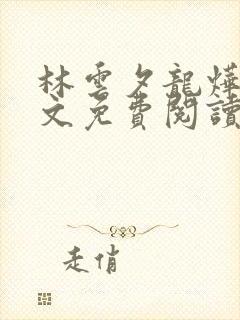 林雲夕龍燁
文免費閱讀
走俏